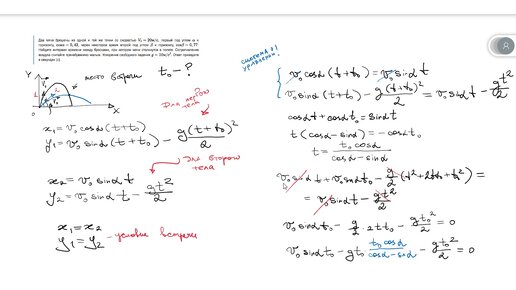 Два мяча брошены из одной и той же точки со скоростью V₀ = 20м/с, первый под углом α к
горизонту, cosα = 0,63, через некоторое время второй под углом β к горизонту, cosβ = 0,77.
Найдите интервал времени между бросками, при котором мячи столкнутся в полете. Сопротивление
воздуха считайте пренебрежимо малым. Ускорение свободного падения g = 10м/с². Ответ приведите
в секундах (c).
место встречи t₀ - ?
Y
X
x₁ = v₀ cosα (t + t₀)
y₁ = v₀ sinα (t + t₀) - g(t + t₀)²/2
Для первого тела
x₂ = v₀ sinα t
y₂ = v₀ sinα t - gt²/2
Для второго тела
x₁ = x₂
y₁ = y₂ - условие встречи
система ур
v₀ cosα (t + t₀) = v₀ sinα t
v₀ sinα (t + t₀) - g(t + t₀)²/2 = v₀ sinα t - gt²/2
cosα t + cosα t₀ = sinα t
t (cosα - sinα) = - cosα t₀
t = t₀ cosα / (cosα - sinα)
v₀ sinα t + v₀ sinα t₀ - g/2 (t² + 2tt₀ + t₀²) =
= v₀ sinα t - gt²/2
v₀ sinα t₀ - g/2 · 2tt₀ - gt₀²/2 = 0
v₀ sinα t₀ - gt₀ t₀ cosα / (cosα - sinα) - gt₀²/2 = 0